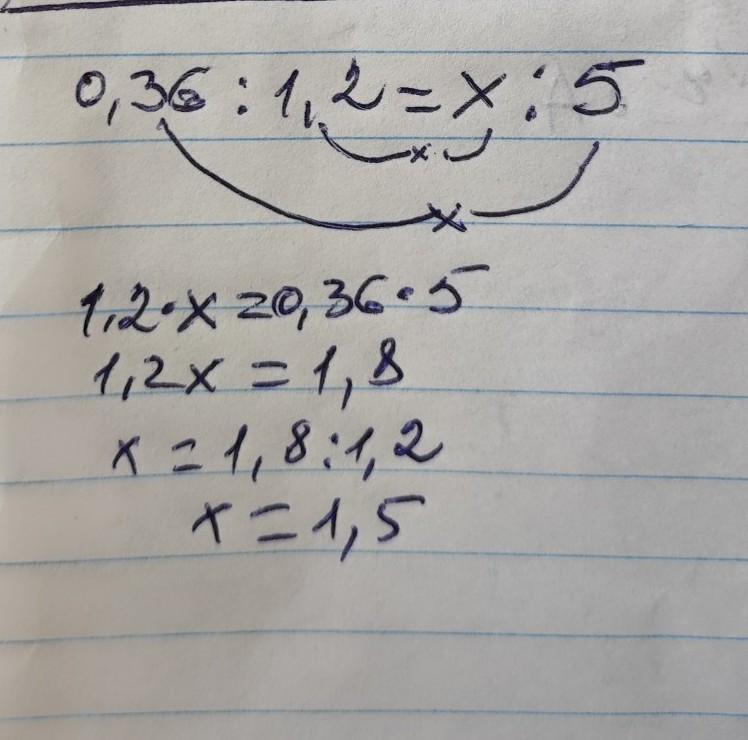 0,36 : 1,2 = x : 5
x
x
1,2 · x = 0,36 · 5
1,2x = 1,8
x = 1,8 : 1,2
x = 1,5